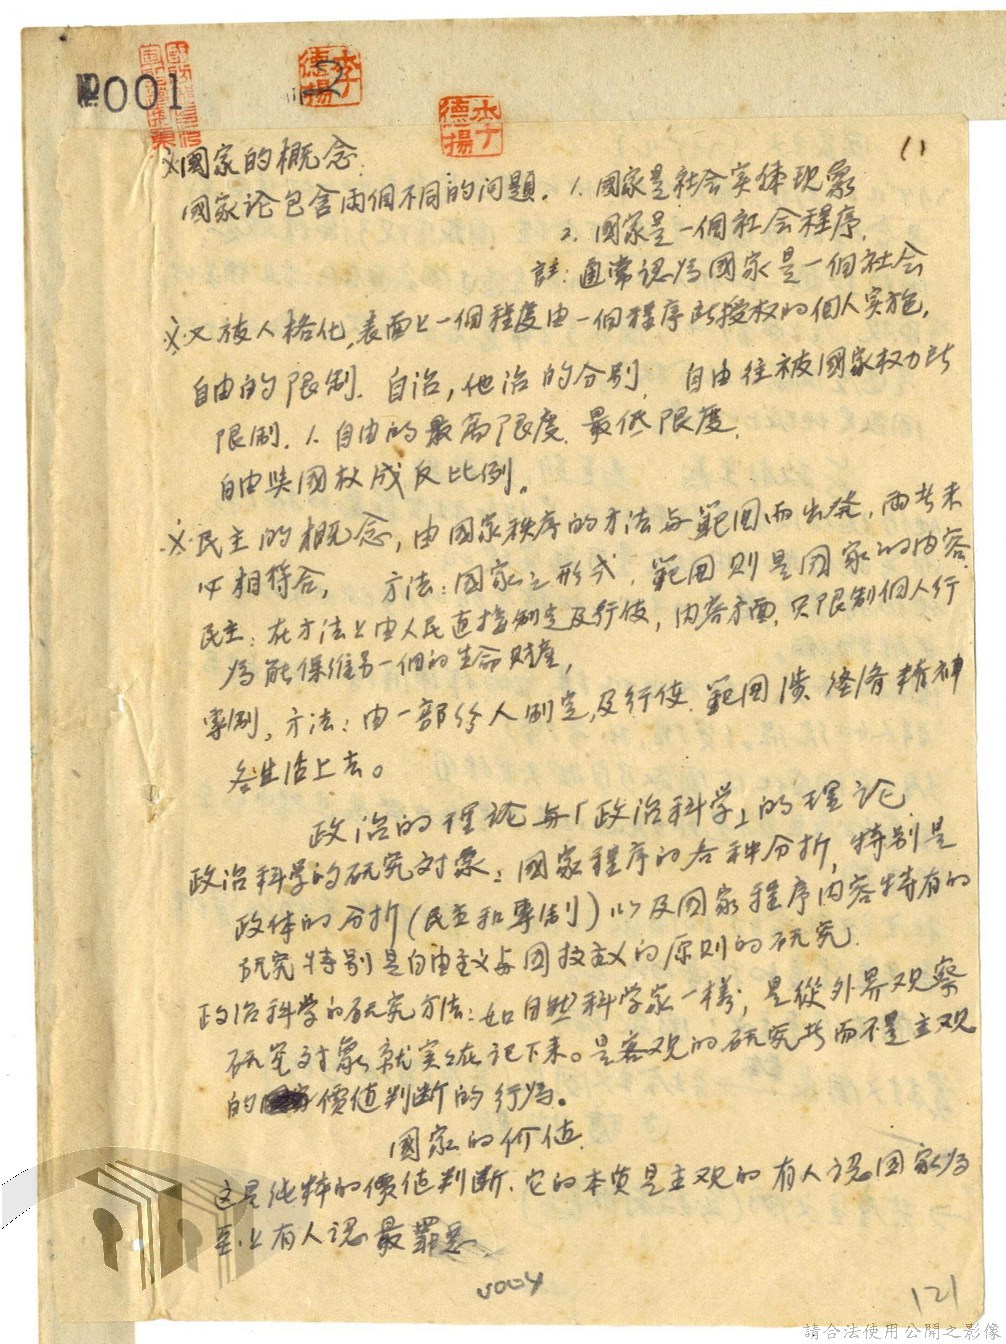 №001
李德揚
李德揚
11
國家的概念
國家论包含兩個不同的问題. 1. 國家是社会实体现象
2. 國家是一個社会程序.
註: 通常認为國家是一個社会
又被人格化,表面上一個程度由一個程序所授权的個人实施,
自由的限制. 自治,他治的分别. 自由往被國家权力所
限制. 1. 自由的最高限度. 最低限度.
自由與國权成反比例。
民主的概念,由國家秩序的方法与範囲而出発,两者未
必相符合, 方法:國家之形式, 範囲则是國家的内容.
民主:在方法上由人民直接制定及行使,内容方面,只限制個人行
为能保維另一個的生命财產,
專制,方法:由一部份人制定,及行使. 範囲 经济精神
各生活上去。
政治的理论与「政治科学」的理论
政治科学的研究对象:國家程序的各种分折,特别是
政体的分折(民主和專制)以及囯家程序内容特有的
研究特别是自由主义与囯权主义的原则的研究.
政治科学的研究方法:如自然科学家一樣,是從外界观察
研究对象就实在记下来。是客观的研究 而不是主观
的價值判断的行为。
國家的价值
这是纯粹的價值判断.它的本质是主观的有人認囯家为
至上有人認最罪恶
0004
121
請合法使用公開之影像